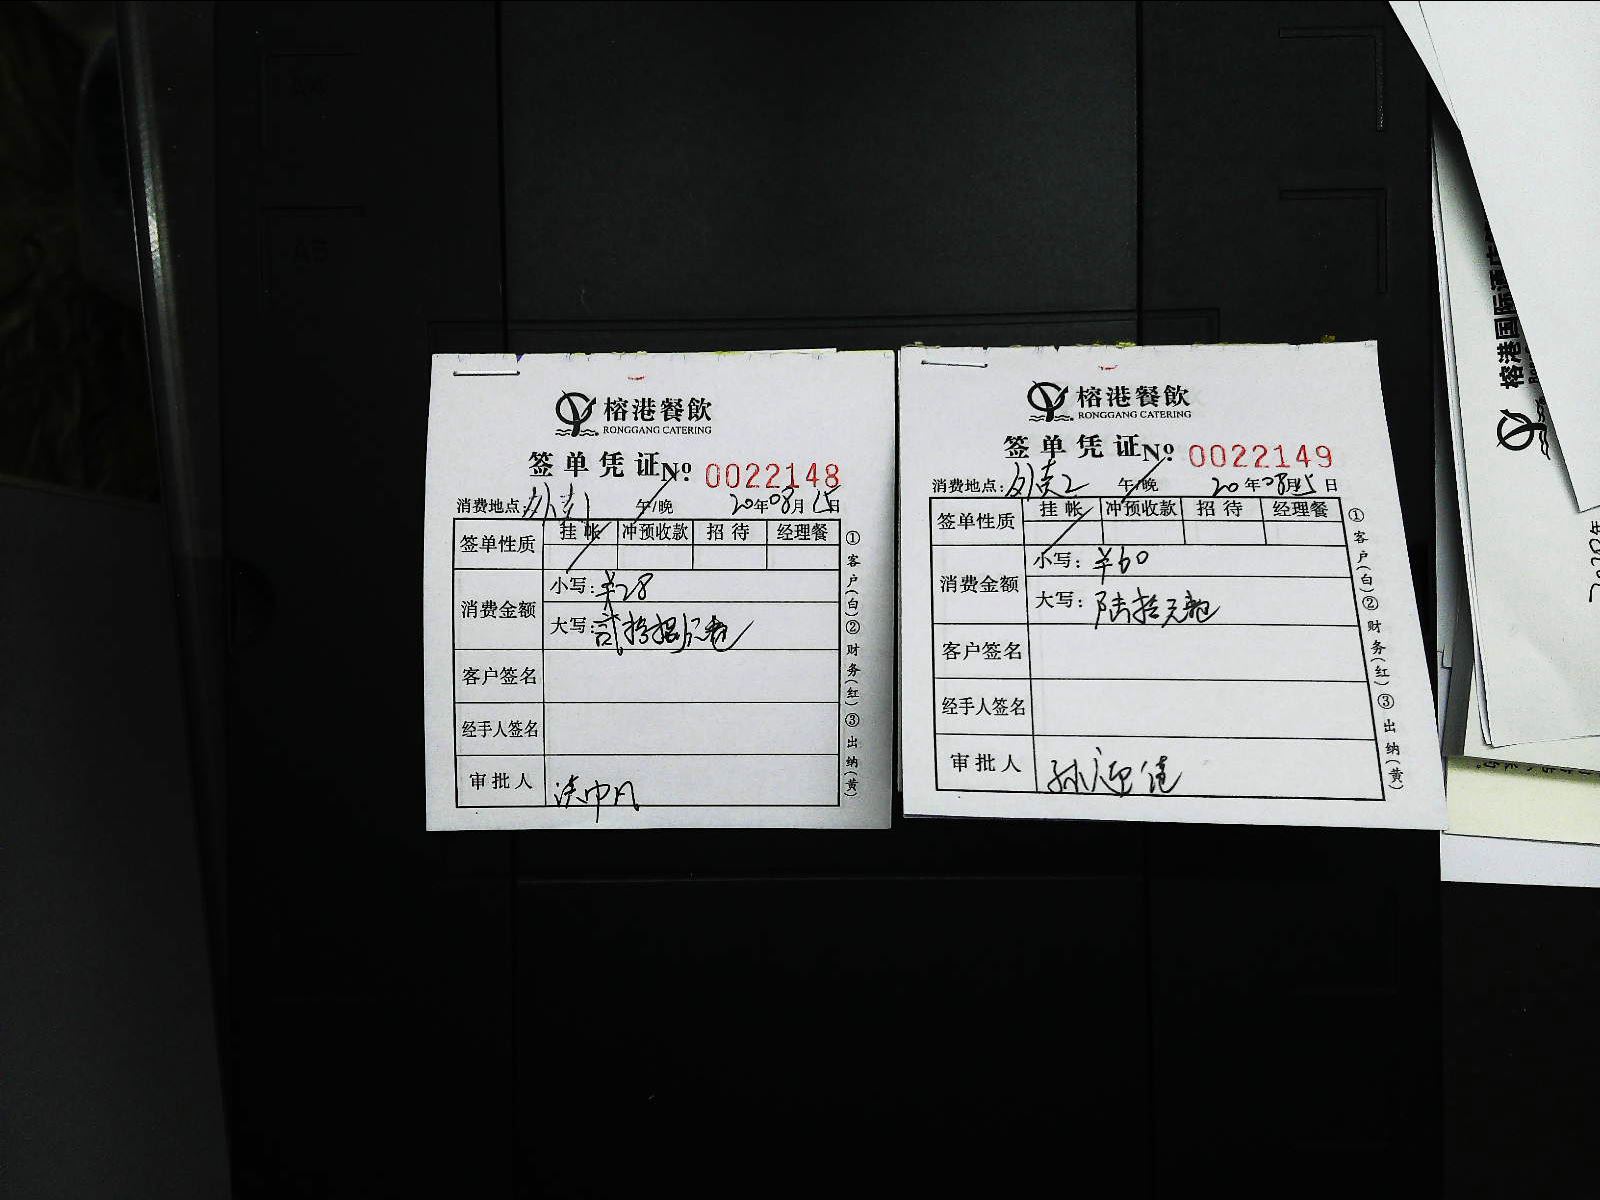 榕港餐飲
RONGGANG CATERING
签单凭证 No. 0022148
消费地点: 外卖1 午/晚 20年08月15日
签单性质 挂帐 冲预收款 招待 经理餐
消费金额 小写: ¥28
大写: 贰拾捌元整
客户签名
经手人签名
审批人
①客户(白)②财务(红)③出纳(黄)
榕港餐飲
RONGGANG CATERING
签单凭证 No. 0022149
消费地点: 外卖2 午/晚 20年08月15日
签单性质 挂帐 冲预收款 招待 经理餐
消费金额 小写: ¥60
大写: 陆拾元整
客户签名
经手人签名
审批人 孙迎健
①客户(白)②财务(红)③出纳(黄)
榕港国际酒店
A5